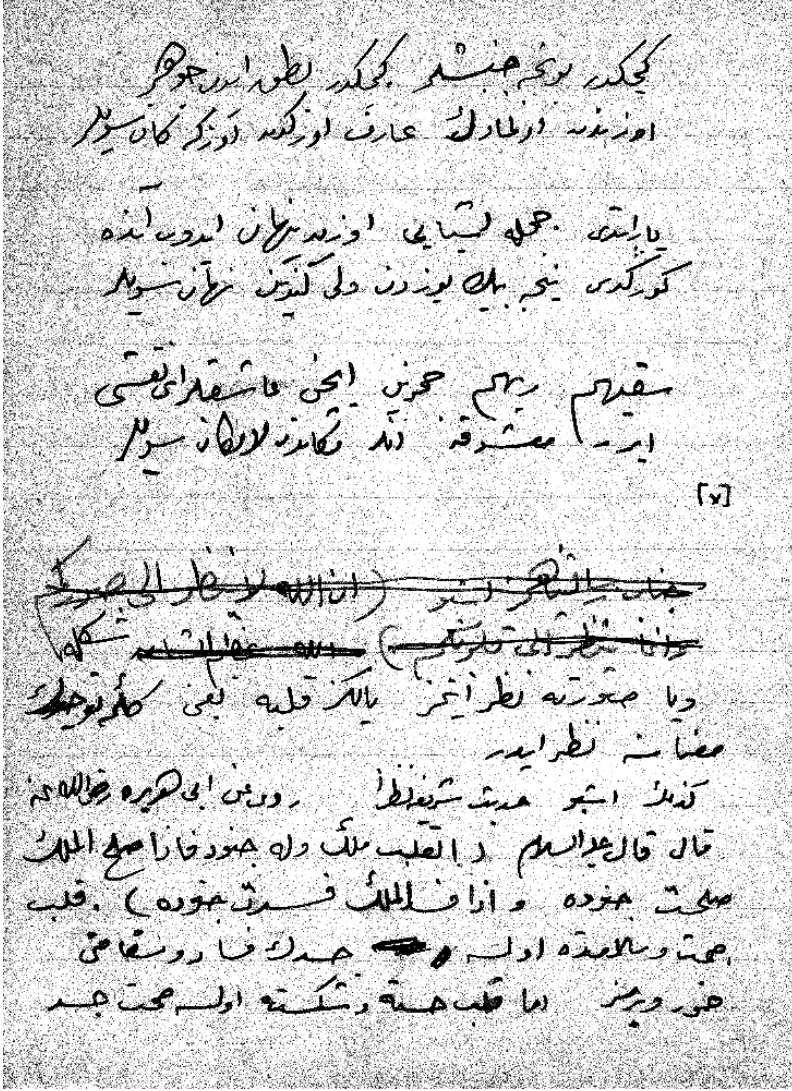 كیمكدر بونجه جنبشلر كیمكدر نطق ایدن جوهر
اوزیندن اولمادك عارف اوزكدن اوزكه كان سویلر
یاراتدی جمله اشیایی اوزین نهان ایدوب آنده
كورندی نیجه بیك یوزدن ولی كندین نهان سویلر
سقیهم ربهم خمرین ایچن عاشقلر ای نقشی
ایرر معشوقنه آنلر مكاندن لامكان سویلر
[٧]
جناب اشبو (ان الله لا ینظر الی صوركم
وانما ینظر الی قلوبكم) الله شكله
ویا صورته نظر ایتمز یالكز قلبه یعنی كلمهٔ توحیدك
معناسنه نظر ایدر
كذلك اشبو حدیث شریفه نظراً روی عن ابی هریره رضی الله عنه
قال قال علیه السلام (القلب ملك وله جنود فاذا صلح الملك
صلحت جنوده و اذا فسد الملك فسدت جنوده) . قلب
صحت وسلامتده اولسه جسدك فساد و سقامتی
ضرر ویرمز اما قلب خسته و شكسته اولسه صحت جسد